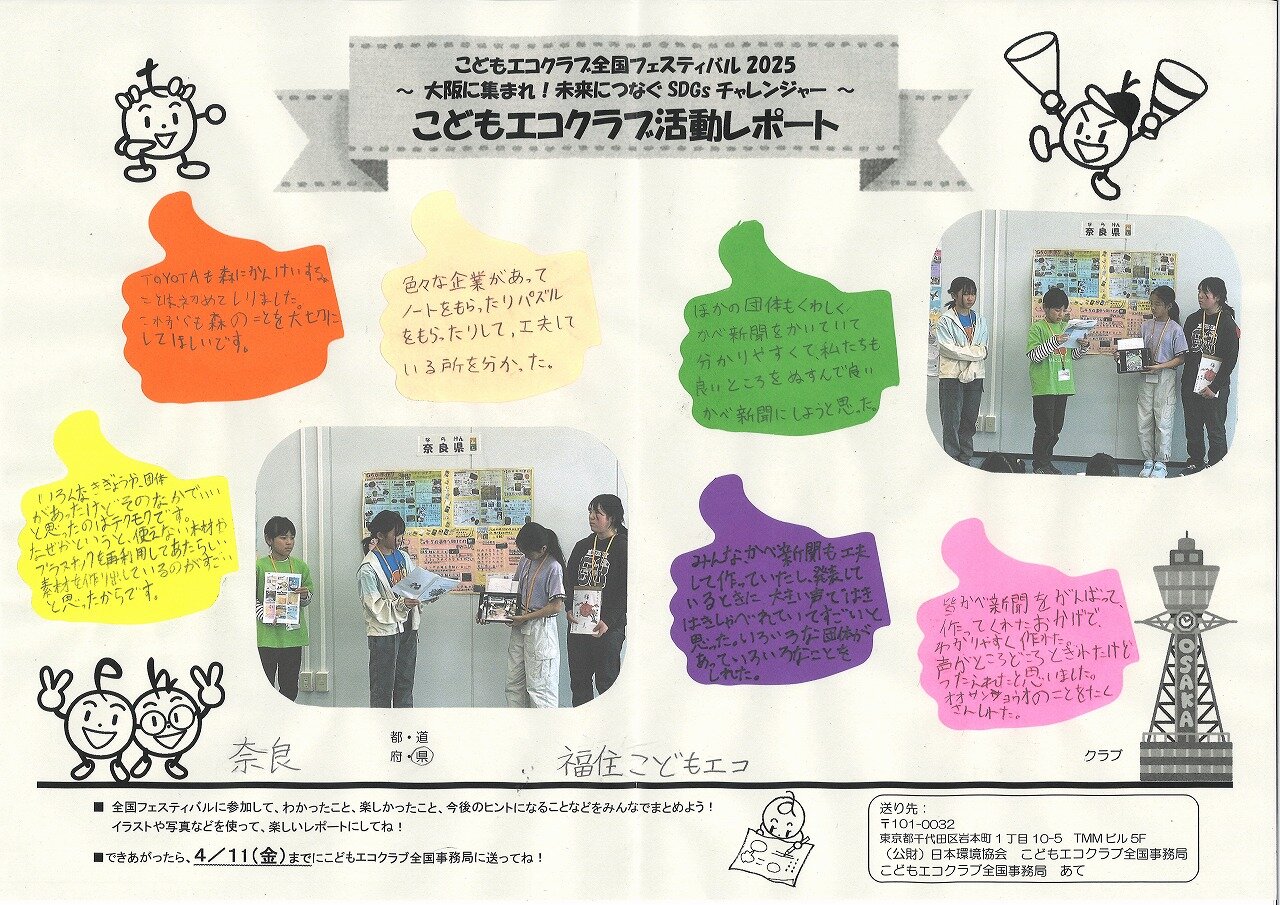 こどもエコクラブ全国フェスティバル 2025
～ 大阪に集まれ！未来につなぐ SDGs チャレンジャー ～
こどもエコクラブ活動レポート
TOYOTAも森にかんけいする。
ことは初めてしりました。
これからも森のことを大切に
してほしいです。
色々な企業があって
ノートをもらったりパズル
をもらったりして、工夫して
いる所を分かった。
ほかの団体もくわしく
かべ新聞をかいていて
分かりやすくて、私たちも
良いところをぬすんで良い
かべ新聞にしようと思った。
ならけん
奈良県
いろんなきぎょうや、団体
があったけどそのなかでいい
と思ったのはテクモクです。
なぜかというと、使えない木材や
プラスチックを再利用してあたらしい
素材を作り出しているのがすごい
と思ったからです。
ならけん
奈良県
みんなかべ新聞も工夫
して作っていたし、発表して
いるときに大きい声ではき
はきしゃべれていてすごいと
思った。いろいろな団体が
あっていろいろなことを
しれた。
皆かべ新聞をがんばって、
作ってくれたおかげで、
わかりやすく作れた。
声がところどころときれたけど
つたえれたと思いました。
オオサンショウオのことをたく
さんしれた。
OSAKA
奈良
都・道
府・県
福住こどもエコ
クラブ
■ 全国フェスティバルに参加して、わかったこと、楽しかったこと、今後のヒントになることなどをみんなでまとめよう！
イラストや写真などを使って、楽しいレポートにしてね！
■できあがったら、4／11（金）までにこどもエコクラブ全国事務局に送ってね！
送り先：
〒101-0032
東京都千代田区岩本町１丁目 10-5 TMM ビル 5F
（公財）日本環境協会 こどもエコクラブ全国事務局
こどもエコクラブ全国事務局 あて